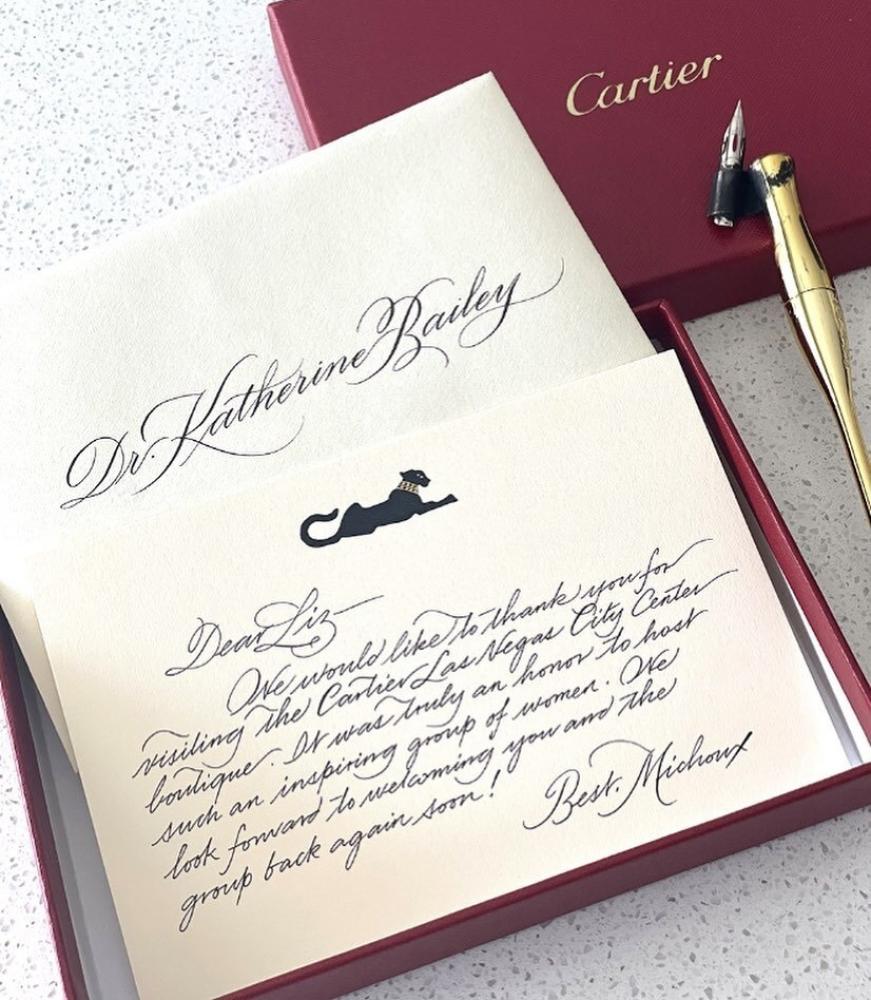 Cartier
Dr. Katherine Bailey
Dear Liz
We would like to thank you for
visiting the Cartier Las Vegas City Center
boutique. It was truly an honor to host
such an inspiring group of women. We
look forward to welcoming you and the
group back again soon!
Best, Michoux